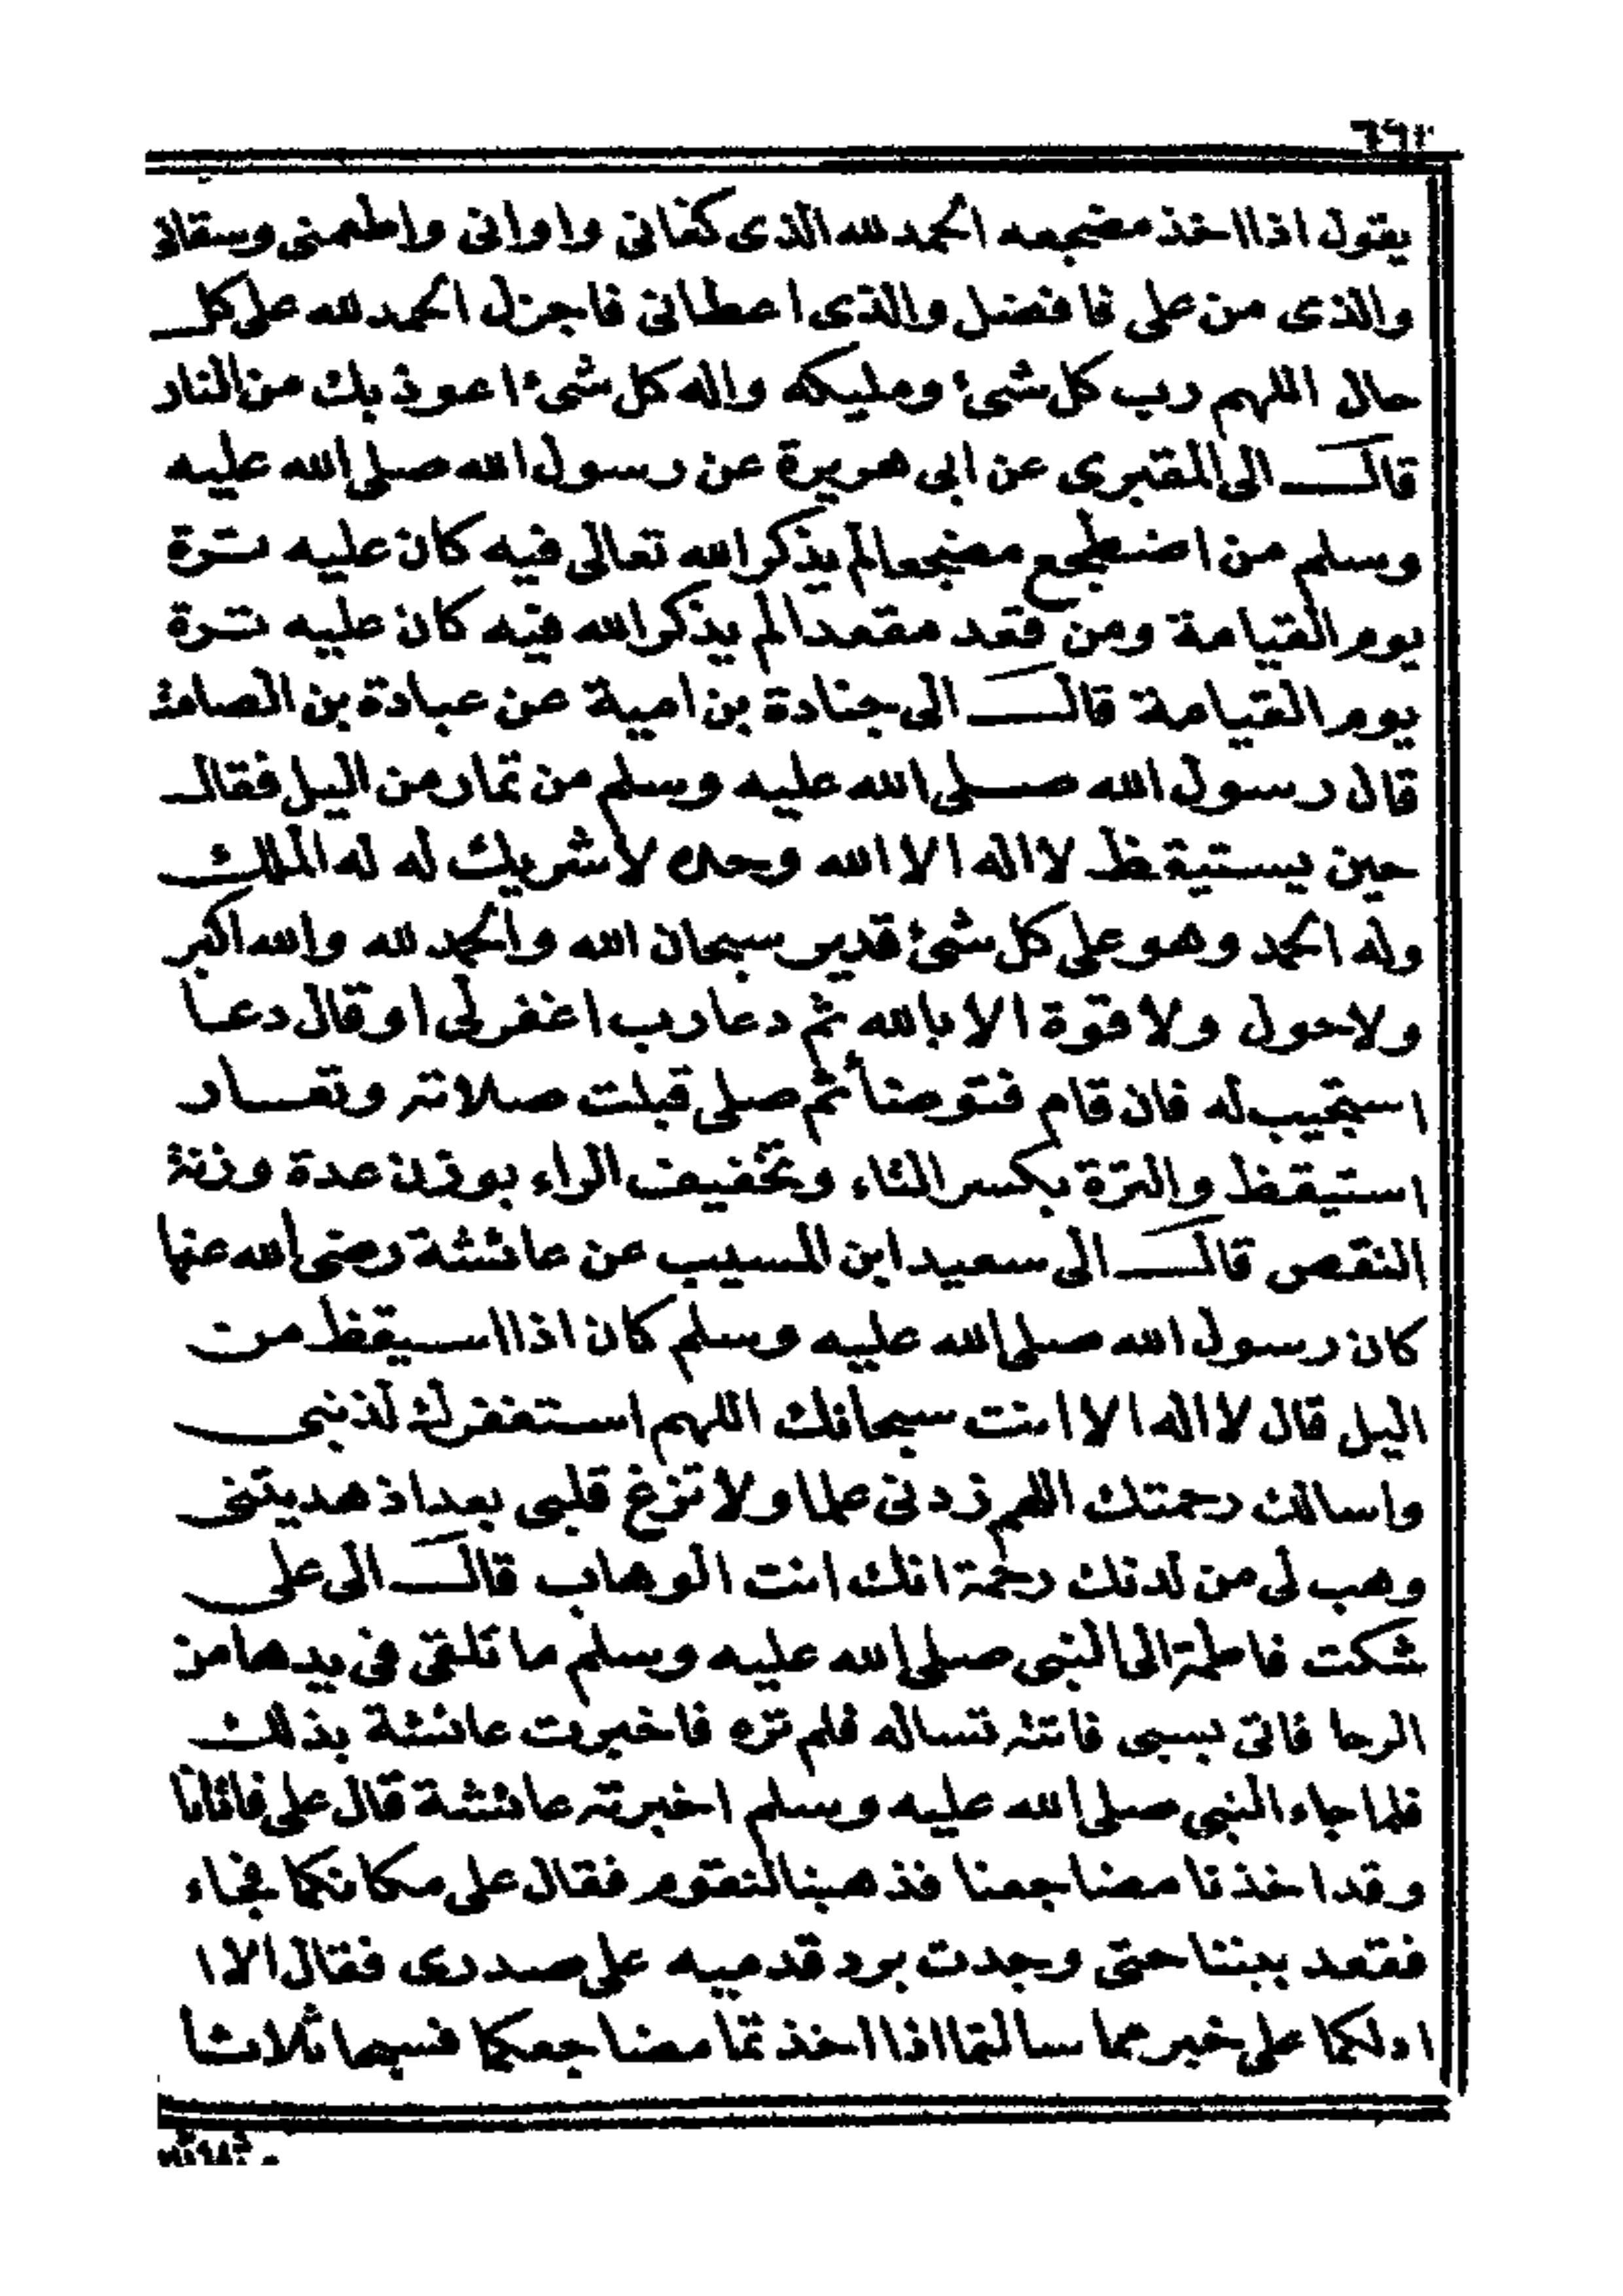 يقول اذا اخذ مضجعه الحمد لله الذى كفانى واوانى واطعمنى وسقانى
والذى من على فافضل والذى اعطانى فاجزل الحمد لله على كل
حال اللهم رب كل شئ ومليكه واله كل شئ اعوذ بك من النار
قال الى المقبرى عن ابى هريرة عن رسول الله صلى الله عليه
وسلم من اضطجع مضجعا لم يذكر الله تعالى فيه كان عليه ترة
يوم القيامة ومن قعد مقعدا لم يذكر الله فيه كان عليه ترة
يوم القيامة قال الى جنادة بن امية عن عبادة بن الصامت
قال رسول الله صلى الله عليه وسلم من تمار من اليل فقال
حين يستيقظ لا اله الا الله وحده لا شريك له له الملك
وله الحمد وهو على كل شئ قدير سبحان الله والحمد لله والله اكبر
ولا حول ولا قوة الا بالله ثم دعا رب اغفر لى او قال دعا
استجيب له فان قام فتوضأ ثم صلى قبلت صلاته وتعسار
استيقظ والترة بكسر التاء وتخفيف الراء بوزن عدة وزنة
النقص قال الى سعيد ابن المسيب عن عائشة رضى الله عنها
كان رسول الله صلى الله عليه وسلم كان اذا اسيقظ من
اليل قال لا اله الا انت سبحانك اللهم استغفرك لذنبى
واسالك رحمتك اللهم زدنى علما ولا تزغ قلبى بعد اذ هديتنى
وهب لى من لدنك رحمة انك انت الوهاب قال الى على
شكت فاطمة الى النبى صلى الله عليه وسلم ما تلقى فى يدها من
الرحا فاتى بسبى فاتته تساله فلم تره فاخبرت عائشة بذلك
فلما جاء النبى صلى الله عليه وسلم اخبرته عائشة قال على فاتانا
وقد اخذنا مضاجعنا فذهبنا لنقوم فقال على مكانكما فجاء
فقعد بيننا حتى وجدت برد قدميه على صدرى فقال الا ا
ادلكما على خير مما سالتما اذا اخذتما مضاجعكما فسبحا ثلاثا